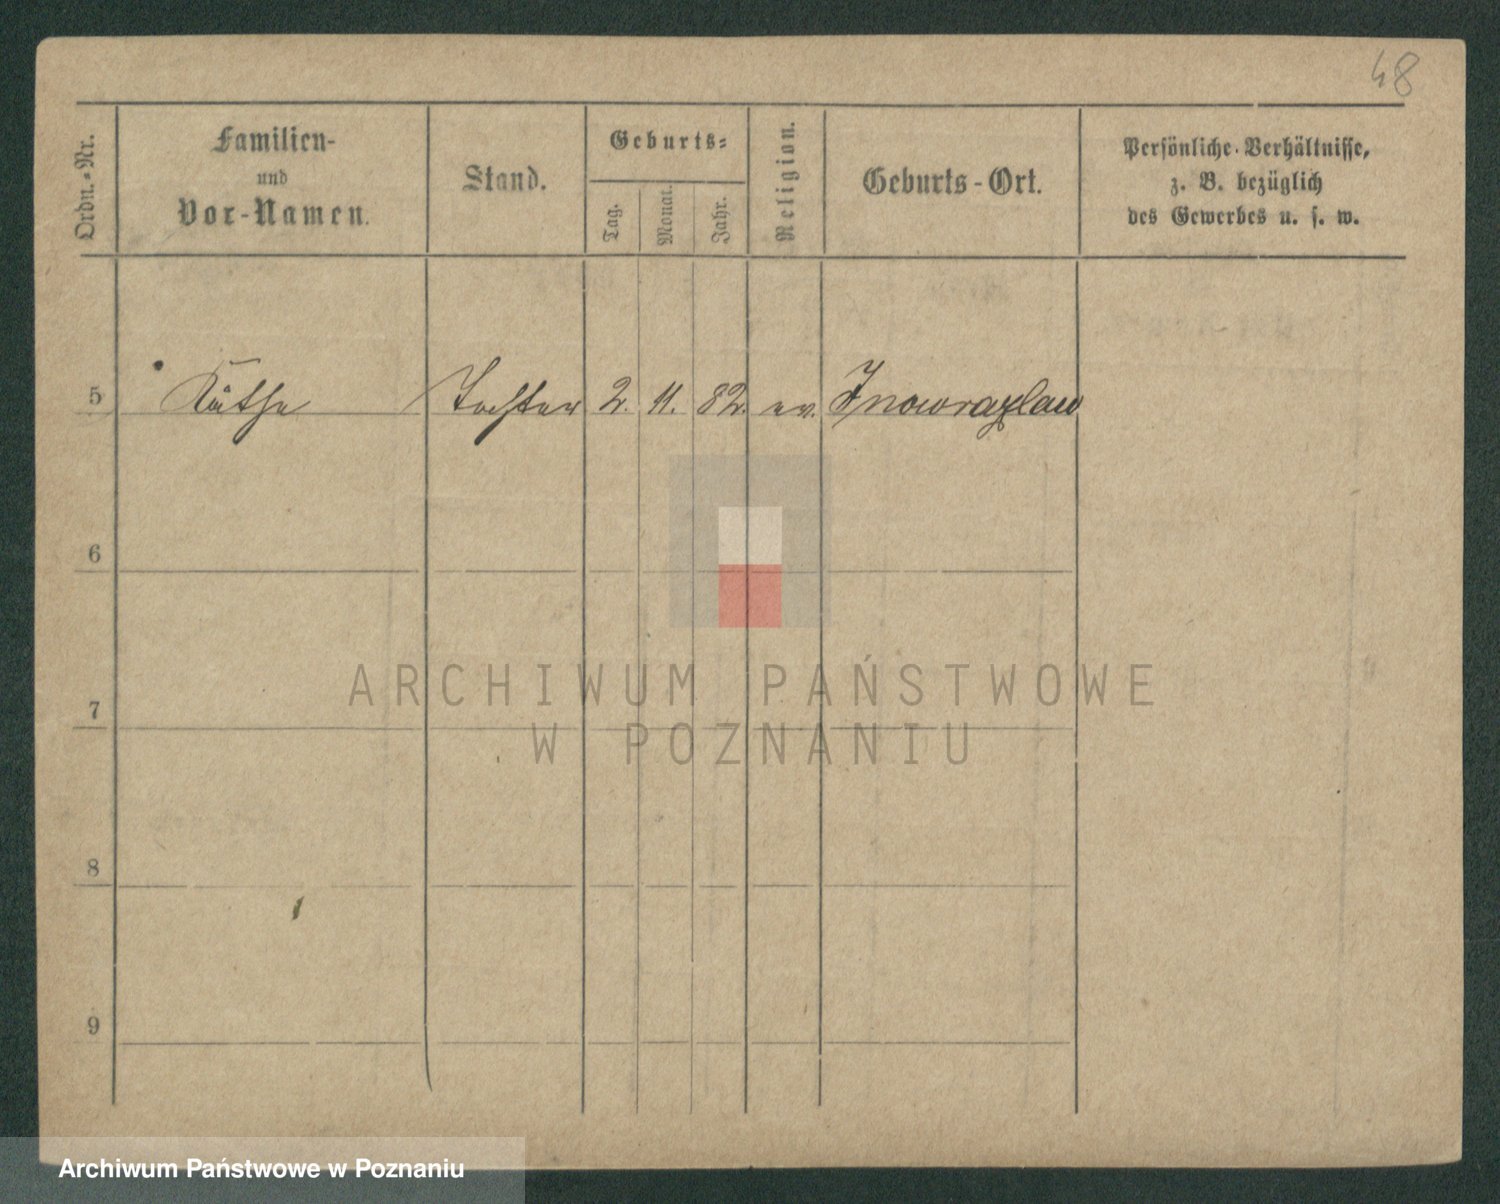 48
Ordn.-Nr.
Familien-
und
Vor-Namen.
Stand.
Geburts-
Tag.
Monat.
Jahr.
Religion.
Geburts-Ort.
Persönliche Verhältnisse,
z. B. bezüglich
des Gewerbes u. s. w.
5 Käthe Tochter 2. 11. 82. ev. Inowrazlaw
6
7
8
9
ARCHIWUM PAŃSTWOWE
W POZNANIU
Archiwum Państwowe w Poznaniu